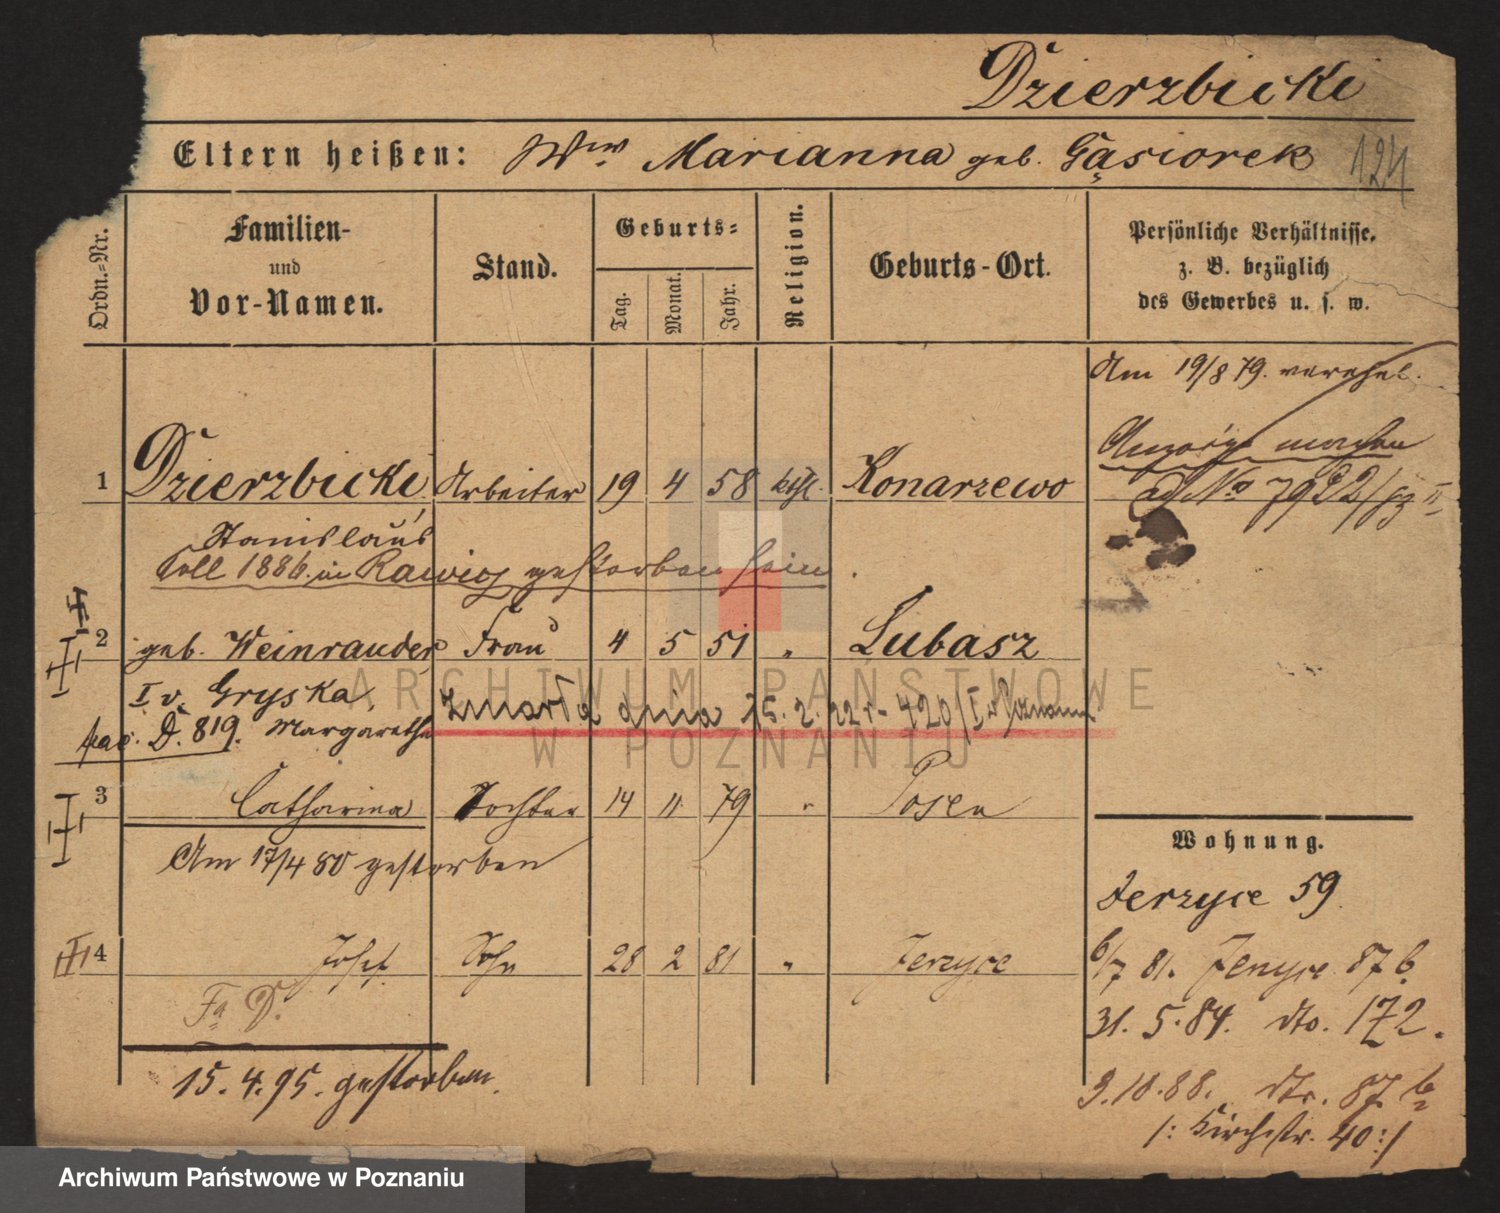 Dzierzbicki
Eltern heißen: Wwe Marianna geb. Gąsiorek 124
Ordn.-Nr.
Familien-
und
Vor-Namen.
Stand.
Geburts-
Tag.
Monat.
Jahr.
Religion.
Geburts-Ort.
Persönliche Verhältnisse,
z. B. bezüglich
des Gewerbes u. s. w.
Am 19/8 79. verehel.
Anzeige machen
ad No 7922/83 II
1 Dzierzbicki Arbeiter 19 4 58 kath. Konarzewo
Stanislaus
Soll 1886 in Rawicz gestorben sein.
2 geb. Weinrauder Frau 4 5 51 " Lubasz
I v. Gryska,
D. 819. Margarethe
zmarła dnia 15. 2. 22 r. 420/I Poznań
3 Catharina Tochter 14 11 79 " Posen
Am 17/4 80 gestorben
4 Josef Sohn 28 2 81 " Jerzyce
Fa D.
15. 4. 95. gestorben.
Wohnung.
Jerzyce 59
6/7 81. Jerzyce 87 b.
31. 5. 84. dto. 172.
9. 10. 88. dto. 87 b
/: Kirchstr. 40 :/
ARCHIWUM PAŃSTWOWE
W POZNANIU
Archiwum Państwowe w Poznaniu